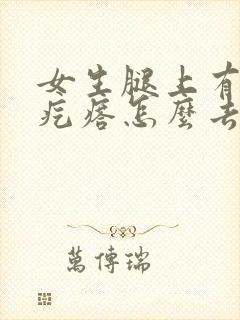 女生腿上有
疙瘩怎麼去
萬傳瑞